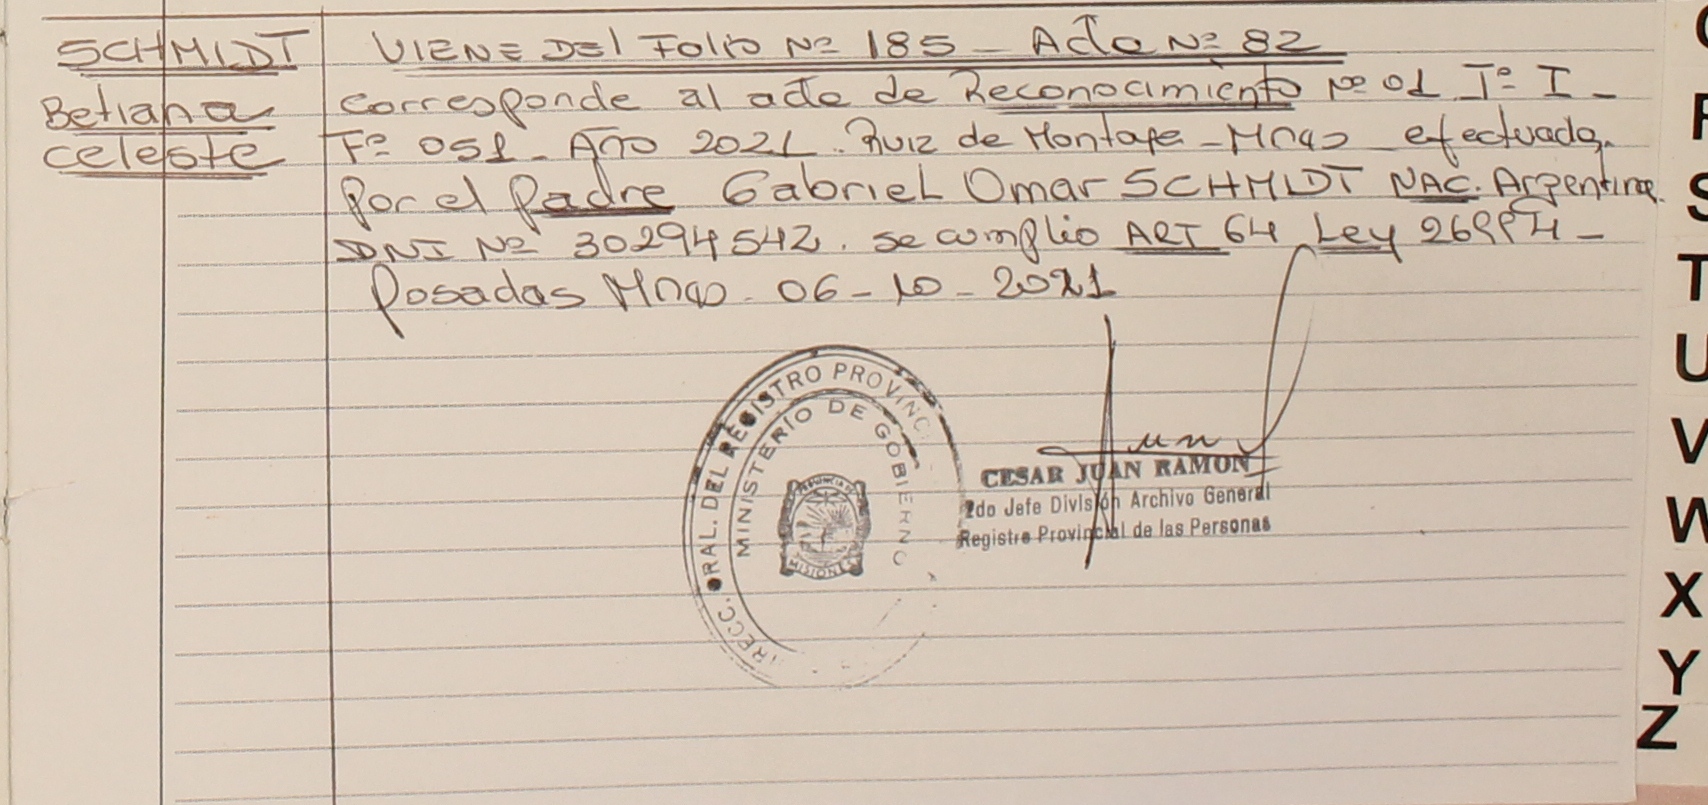 SCHMIDT
Betiana
celeste
VIENE DEL Folio Nº 185 - Acta Nº 82
corresponde al acta de Reconocimiento Nº 01 Tº I -
Fº 051 - Año 2021. Ruiz de Montoya - Mnes efectuada
por el padre Gabriel Omar SCHMIDT NAC. Argentina
DNI Nº 30294542. se cumplio ART 64 Ley 26994 -
Posadas Mnes. 06-10-2021
RECC. GRAL. DEL REGISTRO PROVINC
MINISTERIO DE GOBIERNO
PROVINCIA DE
MISIONES
CESAR JUAN RAMON
2do Jefe División Archivo General
Registro Provincial de las Personas
R
S
T
U
V
W
X
Y
Z